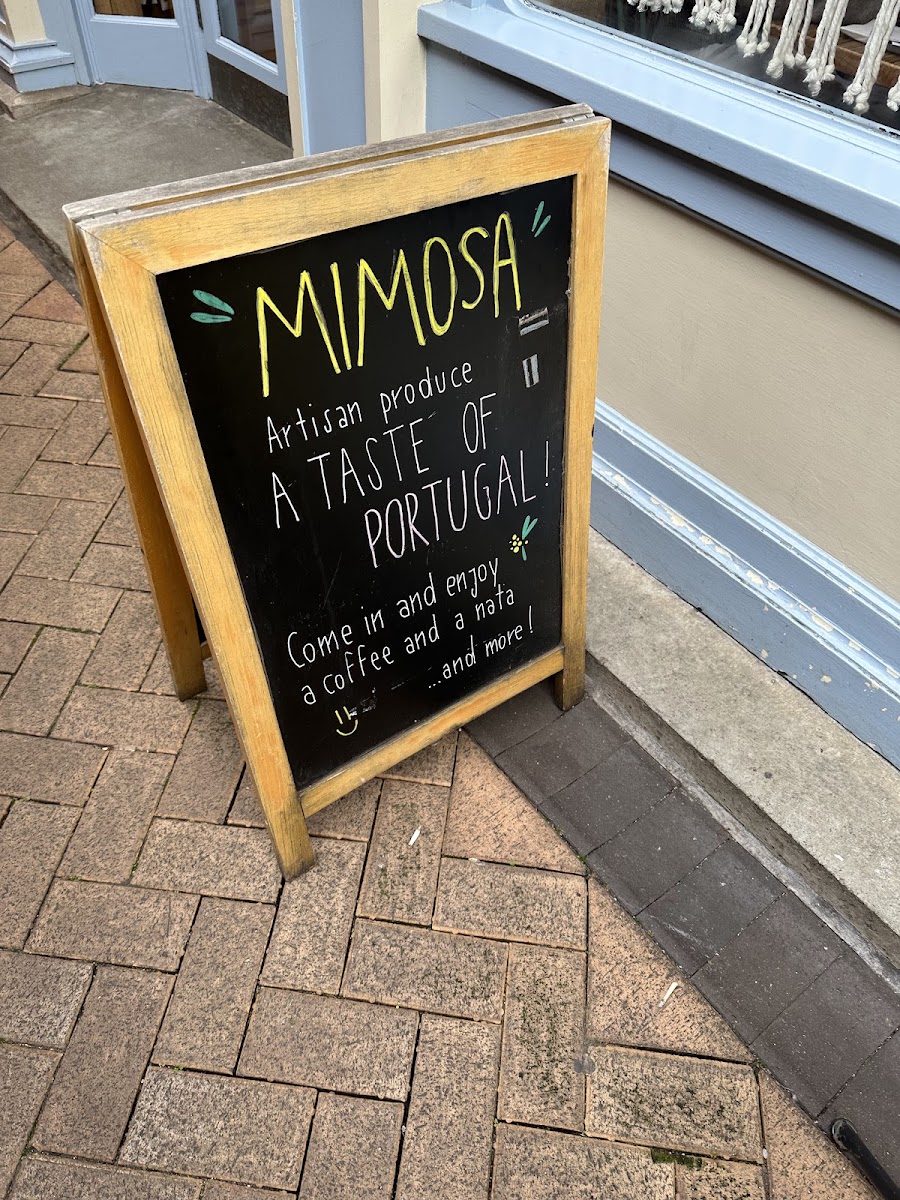 MIMOSA
Artisan produce
A TASTE OF
PORTUGAL!
Come in and enjoy
a coffee and a nata
...and more!